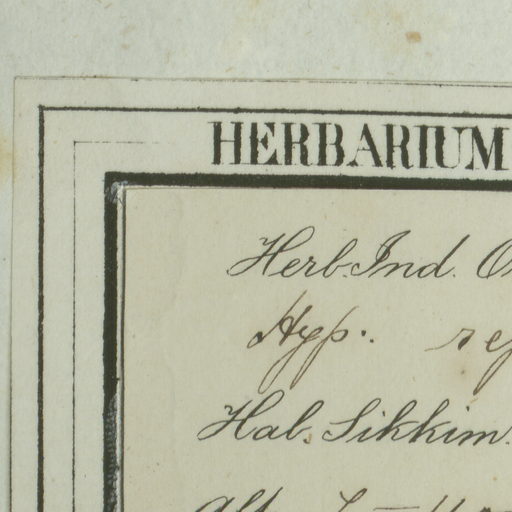 HERBARIUM
Herb. Ind. O
Hyp. rep
Hab. Sikkim.